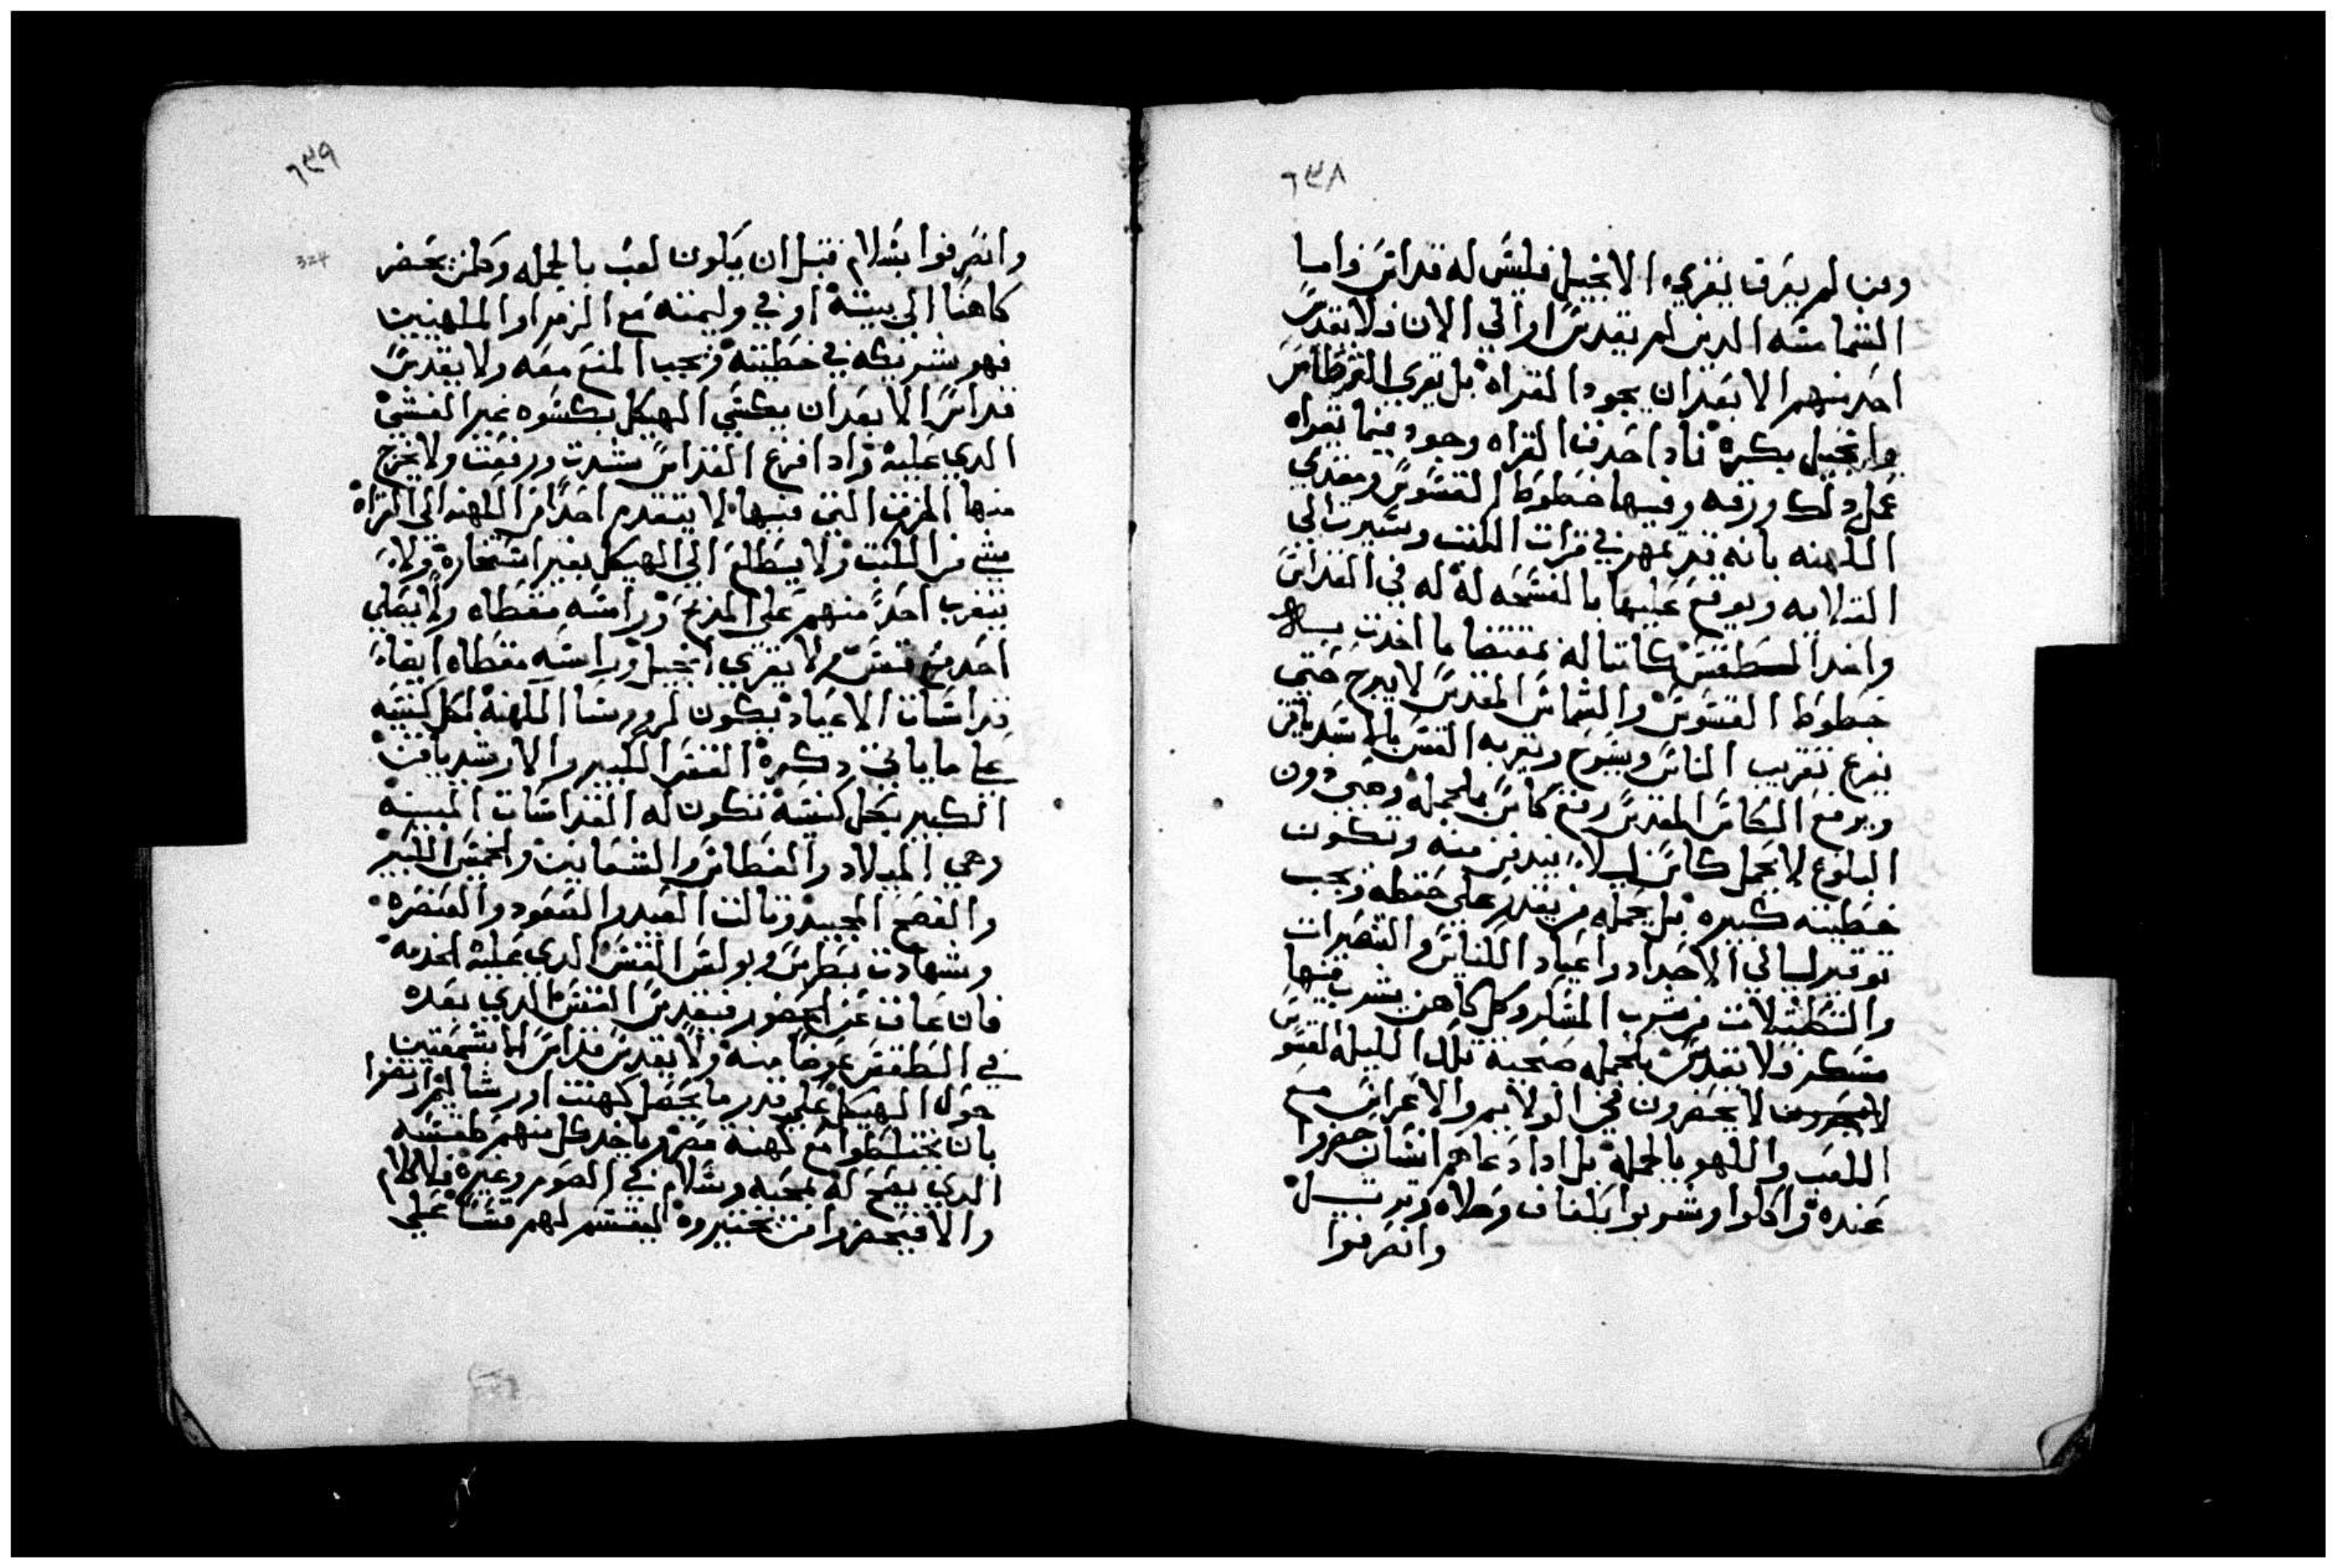 ٦٣٨
ومن لم يعرف يقري الانجيل فليس له قداس واما
الشمامسه الدين لم يقدسوا والي الان فلا يقدس
احد منهم الا بعد ان يجود القراه بل يقري القرطاس
وانجيل بكره فادا احدث القراه وجود فيما يقراه
عمل دلك ورقه وفيها خطوط القسوس ومقدمي
الكهنه بانه قد تمهر في قرات الكتب وسيرت الي
القلايه ويوقع عليها بالفسحه له في القداس
واخد الطقس كاتبا له بمقتضا ما اخدت بـ
خطوط القسوس والشماس المقدس لا يبرح حتي
يفرغ تقريب الناس ويسرح ويقربه القس بالاسبدياقن
ويرفع الكاس المقدس رفع كاس بالجمله وصبي دون
البلوغ لا يحمل كاس ليلا يتبدد منه وتكون
خطيته كبيره بل يحمله من يقدر علي حفظه ويجب
توقير ليالي الاحداد واعياد الكنايس والنصرات
والشطيلات من شرب المسكر وكل كاهن يشرب فيها
مسكر ولا يقدس بالجمله صبحية تلك الليله القسوس
لا يحضرون في الولايم والاعراس مع
اللعب واللهو بالجمله بل ادا دعاهم انسان حضروا
عنده واكلوا وشربوا بكفاف وصلاه وترتيل
وانصرفوا
٦٣٩
324
وانصرفوا بسلام قبل ان يكون لعب بالجمله وكلمن يحضر
كاهنا الي بيته او في وليمته مع الزمر او الملهيين
فهو شريكه في خطيته ويجب المنع معه ولا يقدس
قداس الا بعد ان يكسي الهيكل بكسوه غير الفشي
الدي عليه وادا فرغ القداس شدت ورفعت ولا يخرج
منها الخرق التي فيها لا يتقدم احد من الكهنه الي القراه
شي من الكتب ولا يطلع الي الهيكل بغير استخاره ولا
يتقرب احد منهم علي المدبح وراسه مغطاه ولا يصلي
احد مع قس ولا يقري انجيل وراسه مغطاه ايضا
قداسات الاعياد تكون لرووسا الكهنه لكل كنيسه
علي ما ياتي دكره القس الكبير والارشيدياقن
الكبير بكل كنيسه تكون له القداسات المبينه
وهي الميلاد والغطاس والشعانين والخميس الكبير
والفصح المجيد وتالت العيد والصعود والعنصره
وشهادت بطرس وبولس القس الدي عليه الخدمه
فان عاف عن الحضور فيقدس القس الدي بعده
في الطقس عوضا منه ولا يقدس قداس الا بشمعتين
حول الهيكل علي قدر ما يحصل كهنت اورشاليم ارتضوا
بان يختلطوا مع كهنة مصر وياخد كل منهم طقسه
الدي يصح له بمحبه وسلام في الصوم وغيره فالكلام
والا فيحضروا من يختيروه ليقسم لهم قسا علي